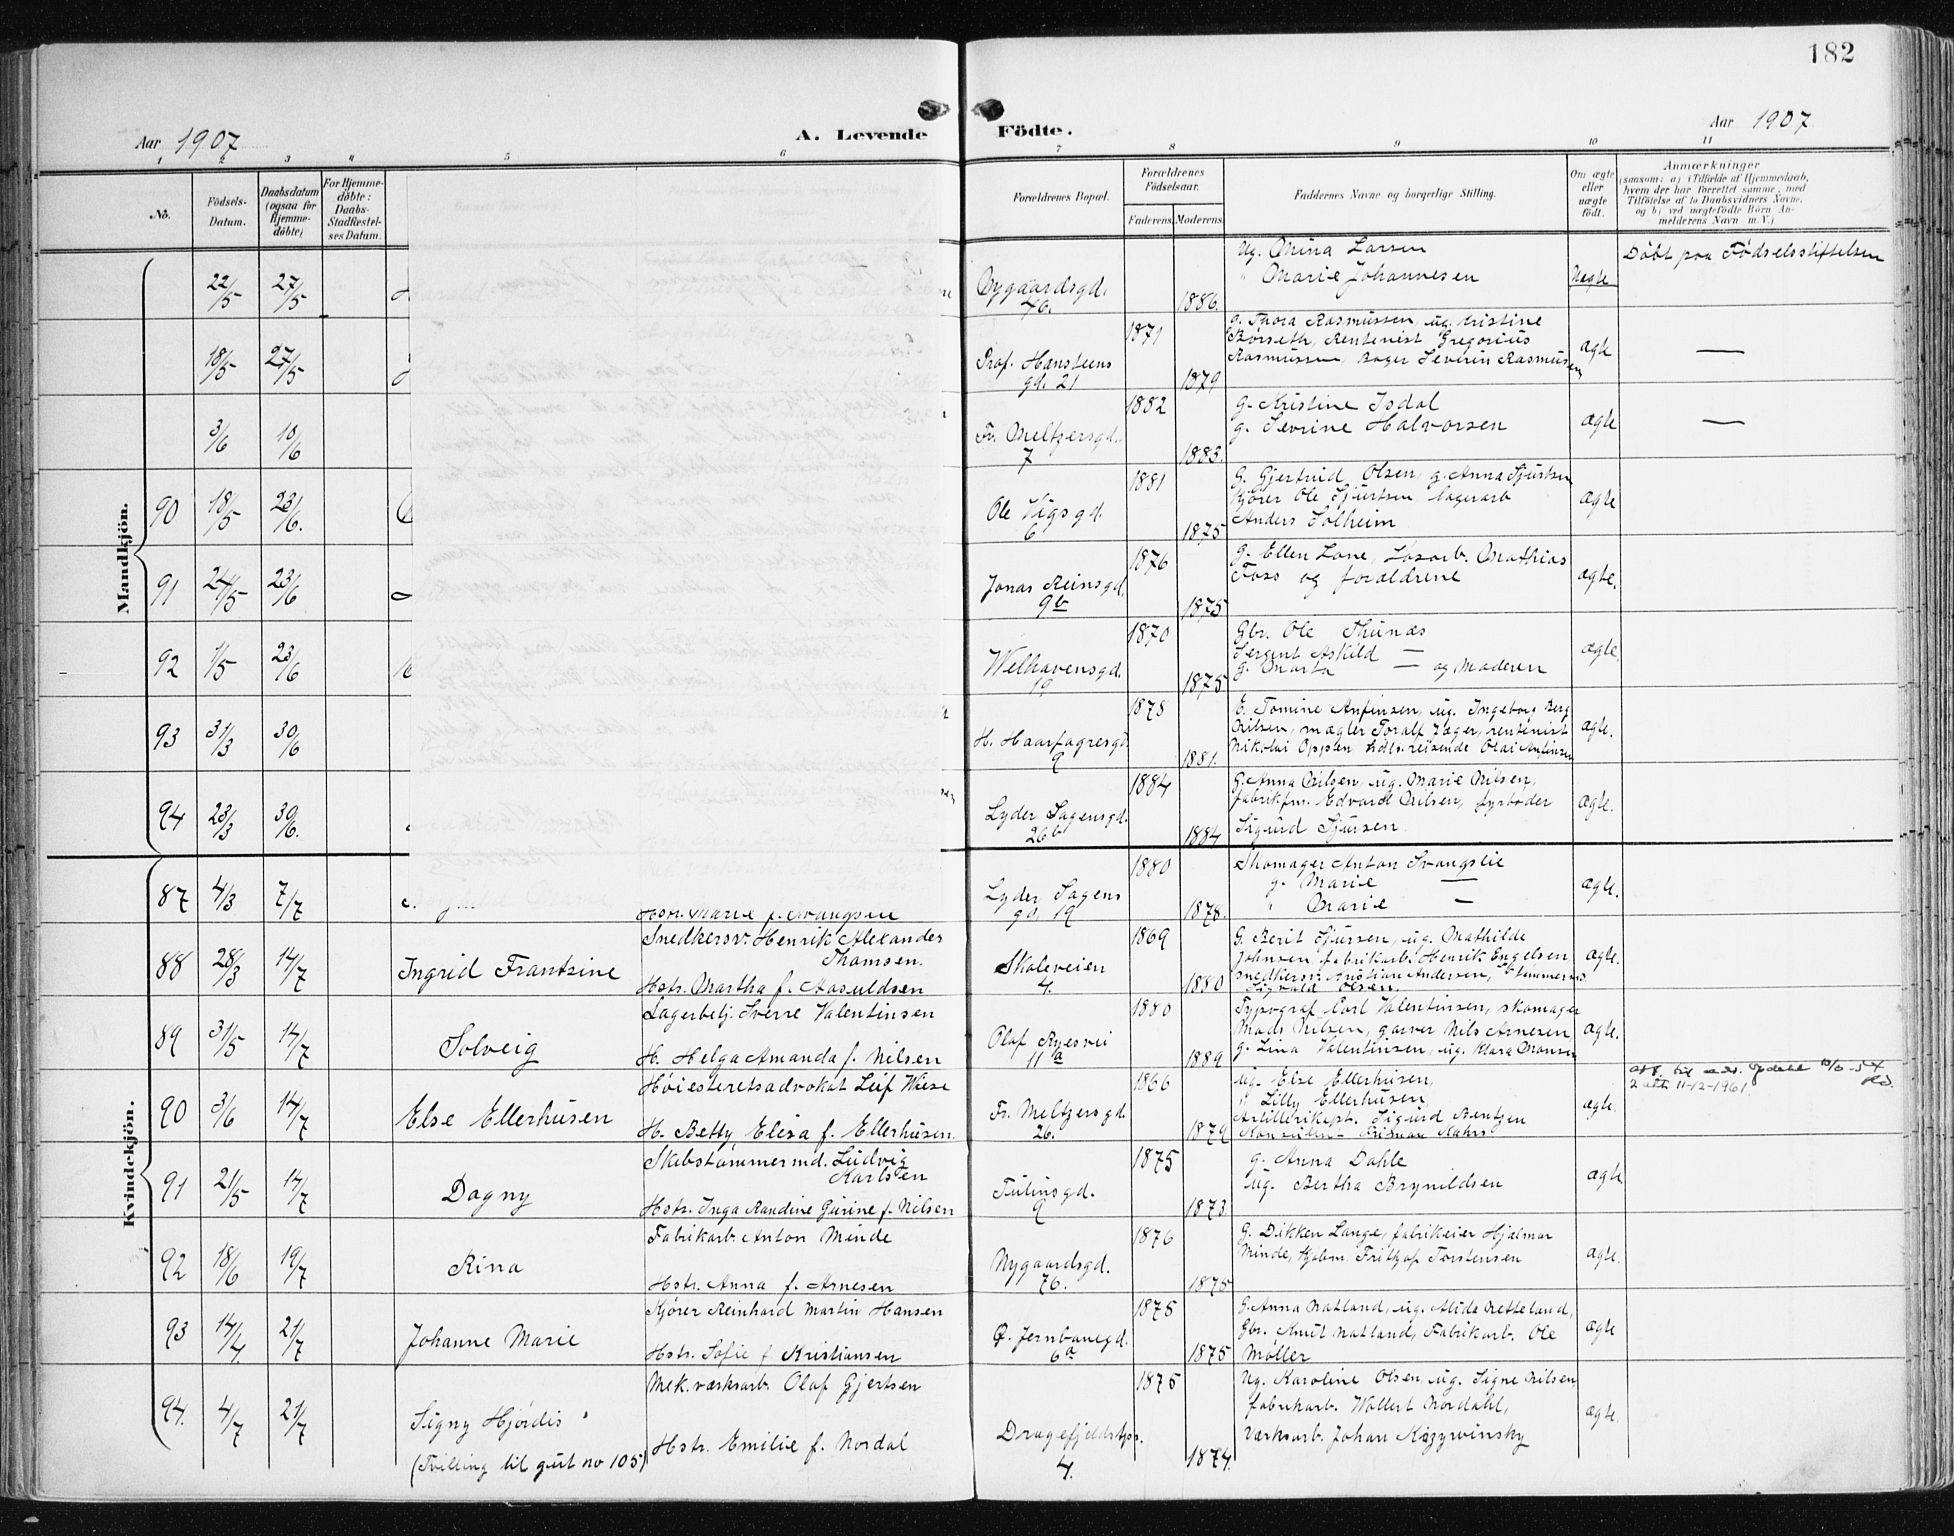 182
Aar 1907
A. Levende
Födte.
Aar 1907
1 2 3 4 5 6 7 8 9 10 11
No.
Födsels-
Datum.
Daabsdatum
(ogsaa for
Hjemme-
döbte)
For Hjemme-
döbte:
Daabs-
Stadfæstel-
ses Datum.
Forældrenes Bopæl.
Forældrenes
Födselsaar.
Faderens. Moderens.
Faddernes Navne og borgerlige Stilling.
Om ægte
eller
uægte
födt.
Anmærkninger
(saasom: a) i Tilfælde af Hjemmedaab,
hvem der har forrettet samme, med
Tilföielse af to Daabsvidners Navne,
og b) ved uægtefödte Börn An-
melderens Navn m. V.)
Mandkjön.
22/5 27/5
Nygaardsgd.
46.
1886.
Ug. Mina Larsen
" Marie Johannesen
Uegte
Döbt paa Fødselsstiftelsen
18/5 27/5
Prof. Hansteens
gd. 21
1871
1879
g. Thora Rasmussen, ug. Kristine
Børseth, Rentenist Gregorius
Rasmussen, Bager Severin Rasmussen
ægte
—
3/6 10/6
Fr. Meltzersgd.
7
1882
1883.
g. Kristine Isdal
g. Sevrine Halvorsen
ægte
—
90 18/5 23/6.
Ole Vigsgd.
6
1881
1875
G. Gjertrud Olsen, g. Anna Sjurtsen
Kjörer Ole Sjurtsen lagerarb
Anders Solheim
ægte
91 24/5 23/6
Jonas Reinsgd.
9b
1876
1875
g. Ellen Lone, Løsarb. Mathias
Foss og forældrene
ægte.
92 1/5 23/6
Welhavensgd.
19
1870
1875
Gbr. Ole Thunæs
Sergent Askild —
g. Marta — og Moderen
ægte.
93 31/3 30/6
H. Haarfagresgd.
9
1878
1881.
E. Tomine Anfinsen, ug. Ingeborg Berg
Nilsen, mægler Toralf Jæger, rentenist
Nikolai Opplen hdls.reisende Olai Anfinsen
ægte.
94 23/3 30/6.
Lyder Sagensgd.
26b
1884
1884
G. Anna Nilsen, ug. Marie Nilsen,
fabrikfm. Edvard Nilsen, fyrböder
Sigurd Sjursen
ægte.
Kvindekjön.
87 4/3 7/7
Hstr. Marie f. Svangsen
Lyder Sagens
gd. 19
1880
1878.
Skomager Anton Svangslie
g. Marie —
" Marie —
ægte.
88 28/3 14/7
Ingrid Frantzine
Snedkersv. Henrik Alexander
Thomsen.
Hstr. Martha f. Aasuldsen
Skoleveien
4.
1869
1880
G. Berit Sjursen, ug. Mathilde
Johnsen, fabrikarb. Henrik Engelsen
snedkersv. Kristian Andersen,
Sigvald Olsen.
ægte.
89 31/5 14/7
Solveig
Lagerbetj. Sverre Valentinsen
H. Helga Amanda f. Nilsen
Olaf Ryesvei
11a
1880
1889
Typograf Carl Valentinsen, skomager
Mads Nilsen, garver Nils Arnesen
g. Lina Valentinsen, ug. Klara Monsen
ægte.
90 3/6 14/7
Else Ellerhusen
Høiesteretsadvokat Leif Wiese
H. Betty Elisa f. Ellerhusen.
Fr. Meltzersgd.
26.
1866
1879
ug. Else Ellerhusen,
" Lilly Ellerhusen,
Artillerikapt. Sigurd Bentzen
ægte.
2 att. 11-12-1961.
91 21/5 14/7
Dagny
Skibstømmermd. Ludvig
Karlsen
Hstr. Inga Randine Gurine f. Nilsen
Tulinsgd.
9
1875
1873
g. Anna Dahle
ug. Bertha Brynildsen
ægte
92 18/6 19/7
Rina
Fabrikarb. Anton Minde
Hstr. Anna f. Arnesen
Nygaardsgd.
76.
1876
1875
G. Dikken Lange, fabrikeier Hjalmar
Minde, Kjøbm. Frithjof Torstensen
ægte.
93 14/4. 21/7
Johanne Marie
Kjörer Reinhard Martin Hansen
Hstr. Sofie f. Kristiansen
Ø. Jernbanegd.
6a
1875
1875
G. Anna Natland, ug. Alida Netteland,
Gbr. Knut Natland, Fabrikarb. Ole
Møller
ægte
94. 4/7 21/7
Signy Hjørdis
(Tvilling til gut no 105)
Mek. værksarb. Olaf Gjertsen
Hstr. Emilie f. Nordal
Dragefjeldstpr.
4.
1875
1874.
Ug. Karoline Olsen, ug. Signe Nilsen,
fabrikarb. Wollert Nordahl,
Værksarb. Johan Kazyrvinsky
ægte.